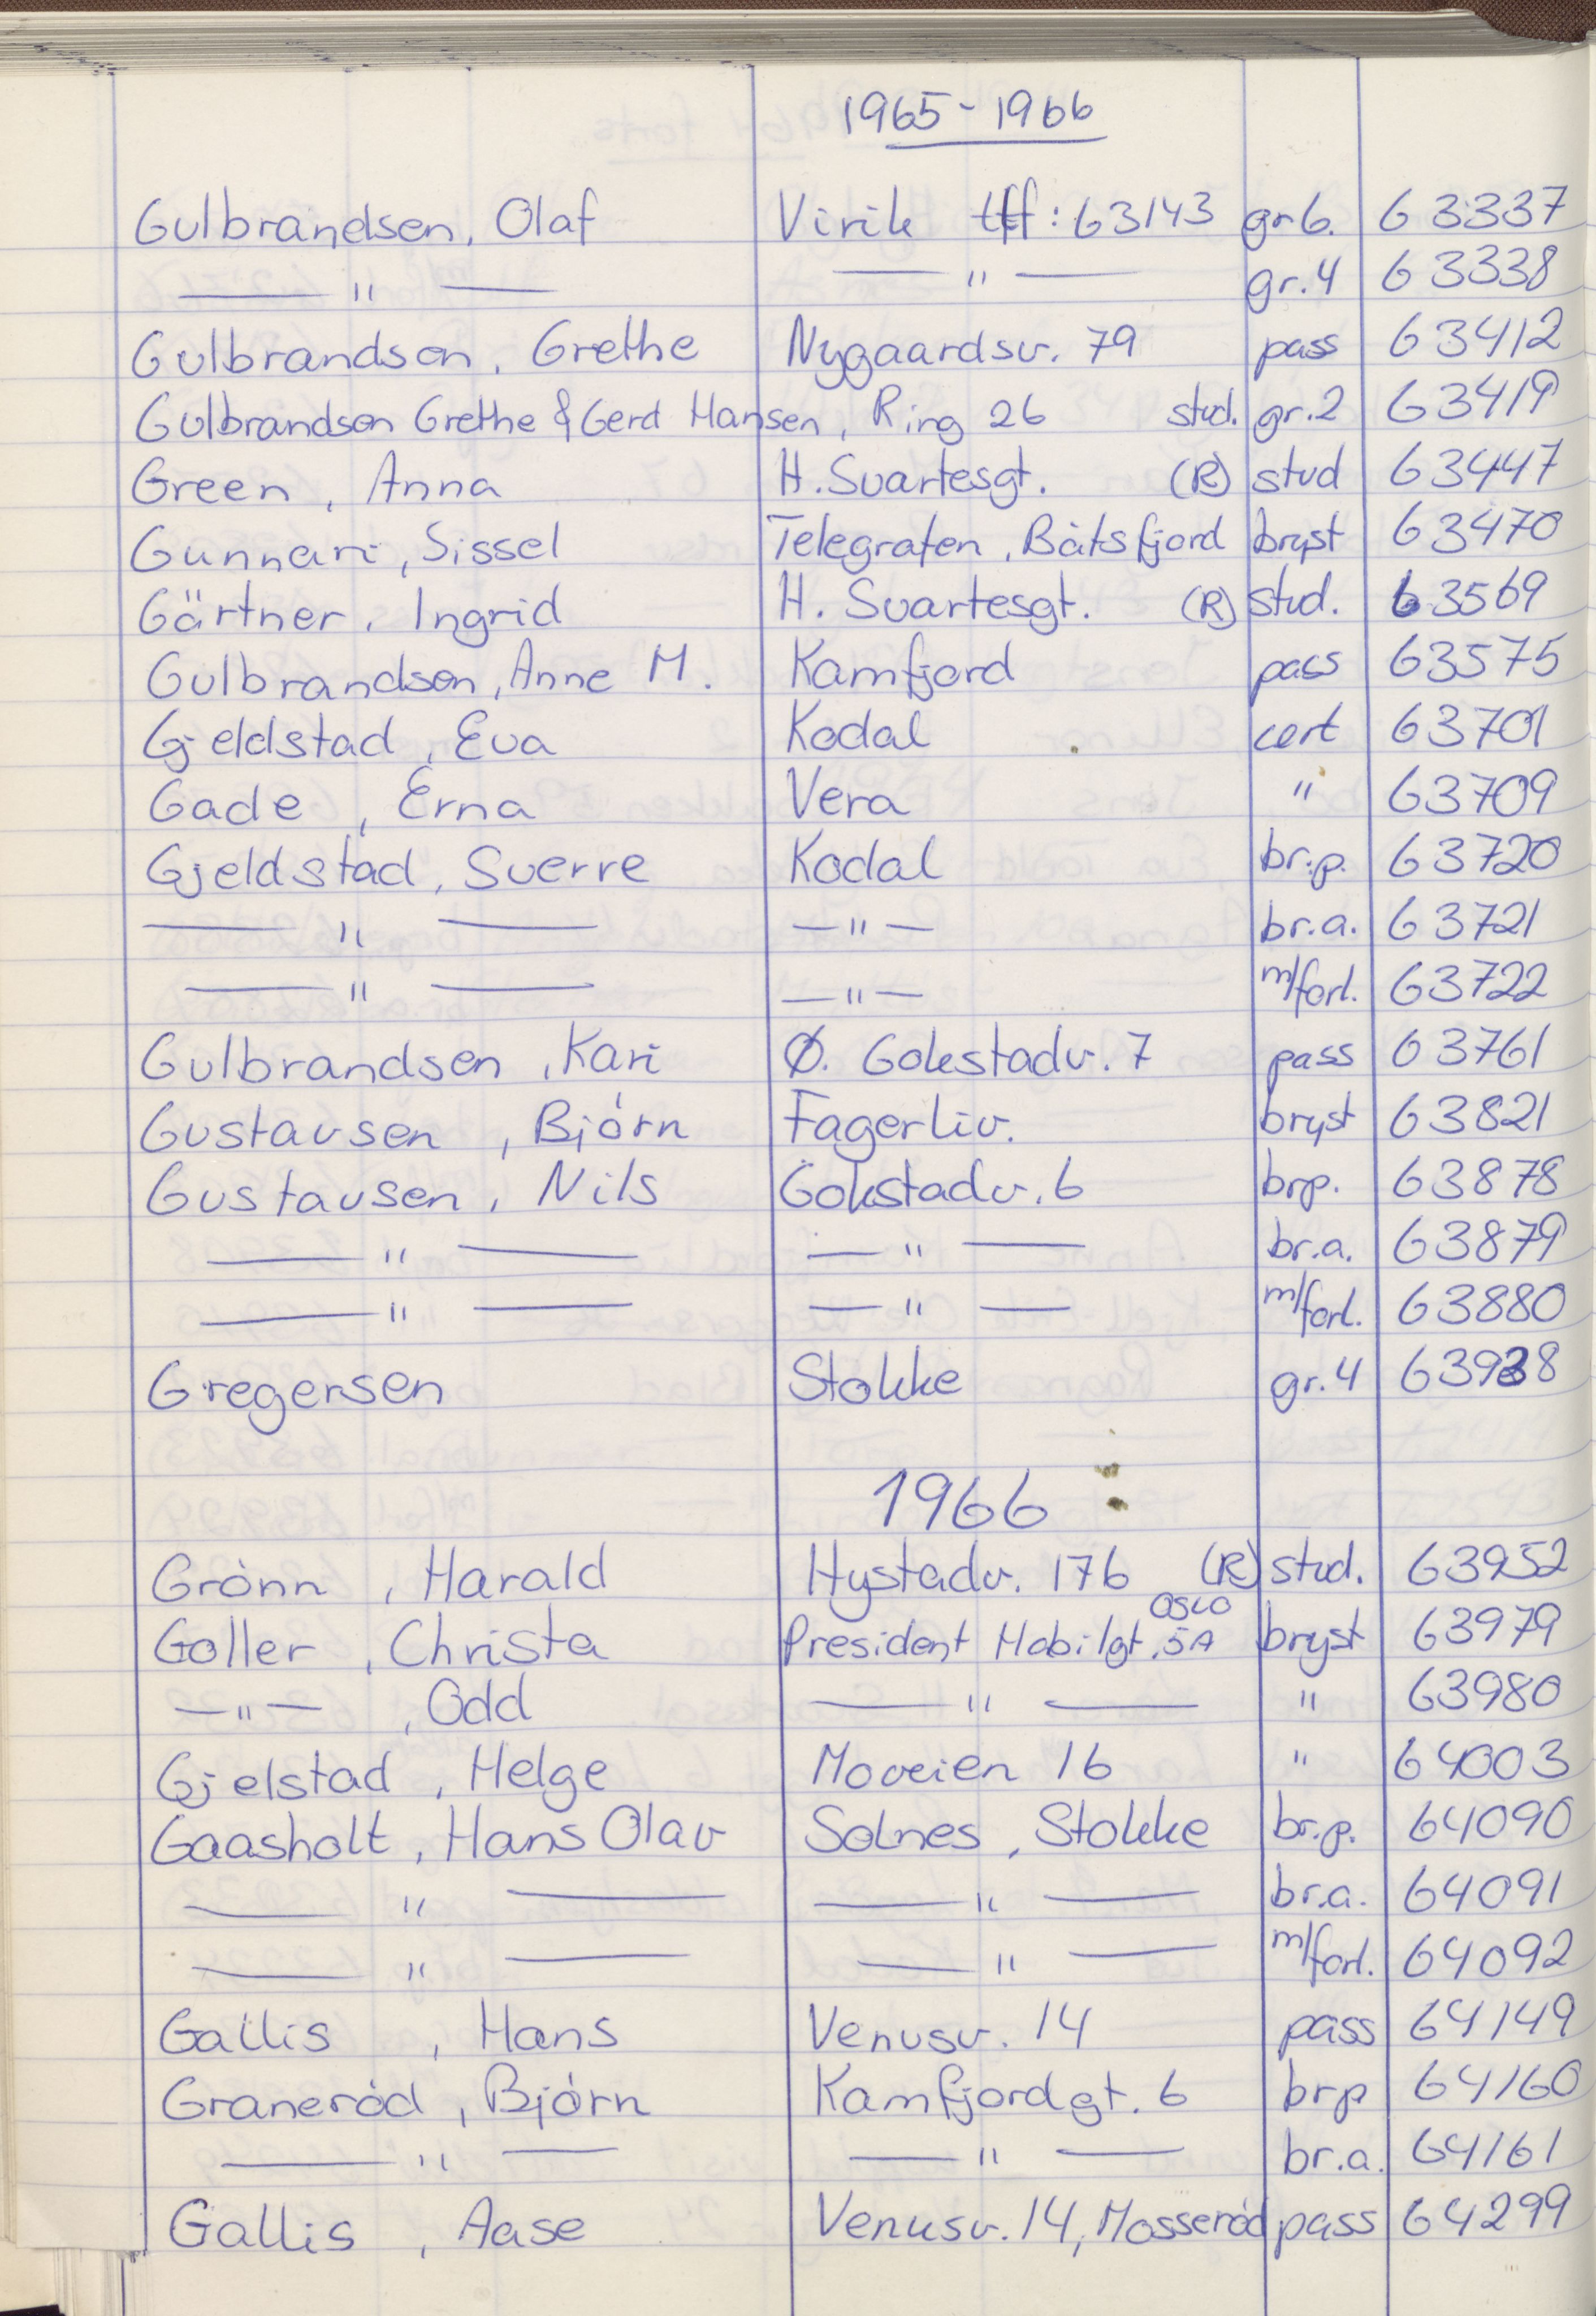 1965-1966
Gulbrandsen, Olaf Virik tlf: 63143 gr 6. 63337
—— " —— —— " —— gr. 4 63338
Gulbrandsen, Grethe Nygaardsv. 79 pass 63412
Gulbrandsen Grethe & Gerd Hansen, Ring 26 stud. gr. 2 63419
Green, Anna H. Svartesgt. (R) stud 63447
Gunnari, Sissel Telegrafen, Båtsfjord bryst 63470
Gärtner, Ingrid H. Svartesgt. (R) stud. 63569
Gulbrandsen, Anne M. Kamfjord pass 63575
Gjeldstad, Eva Kodal cert 63701
Gade, Erna Vera " 63709
Gjeldstad, Sverre Kodal br.p. 63720
—— " —— — " — br.a. 63721
—— " —— — " — m/forl. 63722
Gulbrandsen, Kari Ø. Gokstadv. 7 pass 63761
Gustavsen, Bjørn Fagerliv. bryst 63821
Gustavsen, Nils Gokstadv. 6 brp. 63878
—— " —— — " —— br.a. 63879
—— " —— — " —— m/forl. 63880
Gregersen Stokke gr. 4 63938
1966
Grönn, Harald Hystadv. 176 (R) stud. 63952
Goller, Christa President Habilgt. 5A OSLO bryst 63979
— " —, Odd —— " —— " 63980
Gjelstad, Helge Moveien 16 " 64003
Gaasholt, Hans Olav Solnes, Stokke br.p. 64090
—— " —— —— " —— br.a. 64091
—— " —— —— " —— m/forl. 64092
Gallis, Hans Venusv. 14 pass 64149
Graneród, Bjórn Kamfjordgt. 6 brp 64160
—— " —— —— " —— br.a. 64161
Gallis, Aase Venusv. 14, Mosseród pass 64299